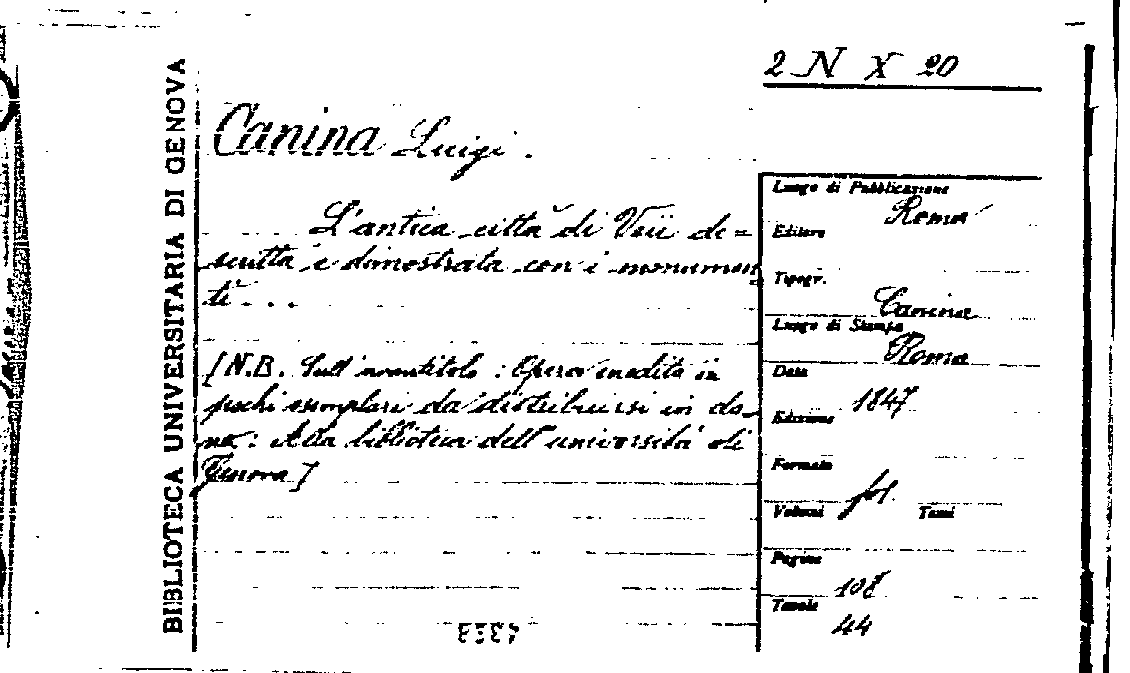 2 N X 20
BIBLIOTECA UNIVERSITARIA DI GENOVA
Canina Luigi.
L'antica città di Veii de=
scritta e dimostrata con i monumen
ti...
[N.B. Sull'avantitolo: Opera inedita in
pochi esemplari da distribuirsi in do-
no: Alla biblioteca dell'università di
Genova]
Luogo di Pubblicazione
Roma
Editore
Tipogr.
Canina
Luogo di Stampa
Roma
Data
1847
Edizione
Formato
fol.
Volumi Tomi
Pagine
108
Tavole
44